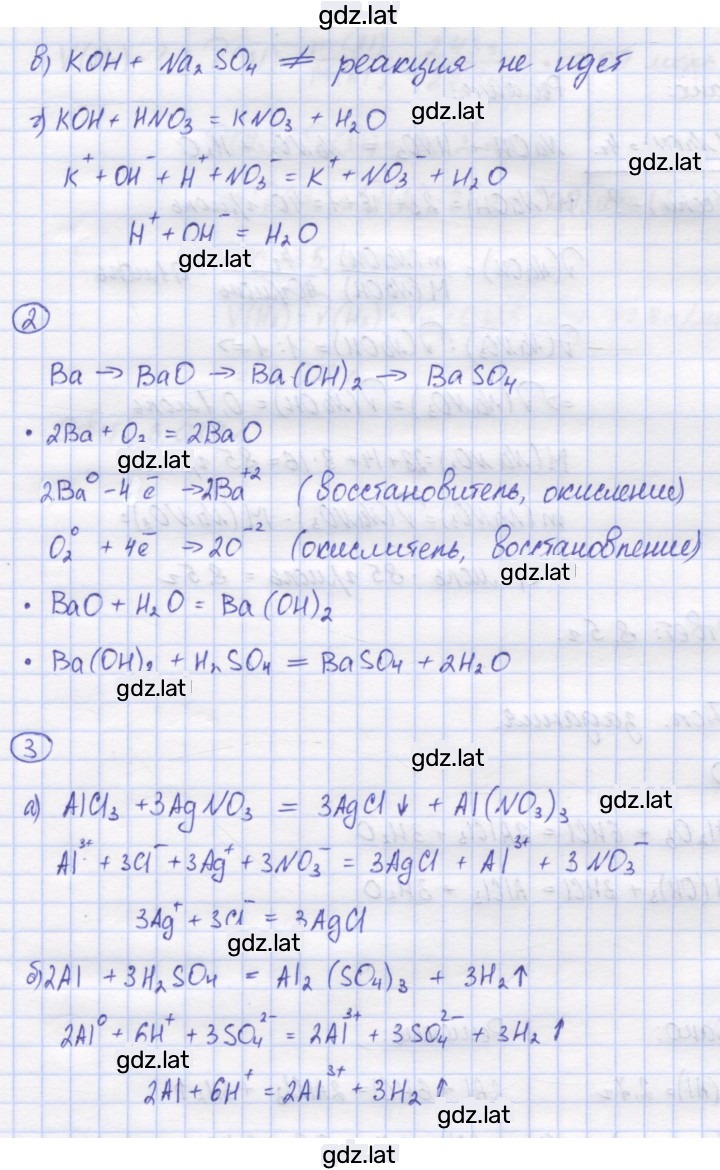 gdz.lat
в) KOH + Na₂SO₄ ≠ реакция не идет
г) KOH + HNO₃ = KNO₃ + H₂O gdz.lat
K⁺ + OH⁻ + H⁺ + NO₃⁻ = K⁺ + NO₃⁻ + H₂O gdz.lat
H⁺ + OH⁻ = H₂O
gdz.lat
2
Ba → BaO → Ba(OH)₂ → BaSO₄
• 2Ba + O₂ = 2BaO
gdz.lat
2Ba⁰ - 4ē → 2Ba⁺² (восстановитель, окисление)
O₂⁰ + 4ē → 2O⁻² (окислитель, восстановление)
gdz.lat
• BaO + H₂O = Ba(OH)₂
• Ba(OH)₂ + H₂SO₄ = BaSO₄ + 2H₂O
gdz.lat
3
gdz.lat
а) AlCl₃ + 3AgNO₃ = 3AgCl↓ + Al(NO₃)₃ gdz.lat
Al³⁺ + 3Cl⁻ + 3Ag⁺ + 3NO₃⁻ = 3AgCl + Al³⁺ + 3NO₃⁻
3Ag⁺ + 3Cl⁻ = 3AgCl
gdz.lat
б) 2Al + 3H₂SO₄ = Al₂(SO₄)₃ + 3H₂↑
2Al⁰ + 6H⁺ + 3SO₄²⁻ = 2Al³⁺ + 3SO₄²⁻ + 3H₂↑
gdz.lat
2Al + 6H⁺ = 2Al³⁺ + 3H₂↑
gdz.lat
gdz.lat